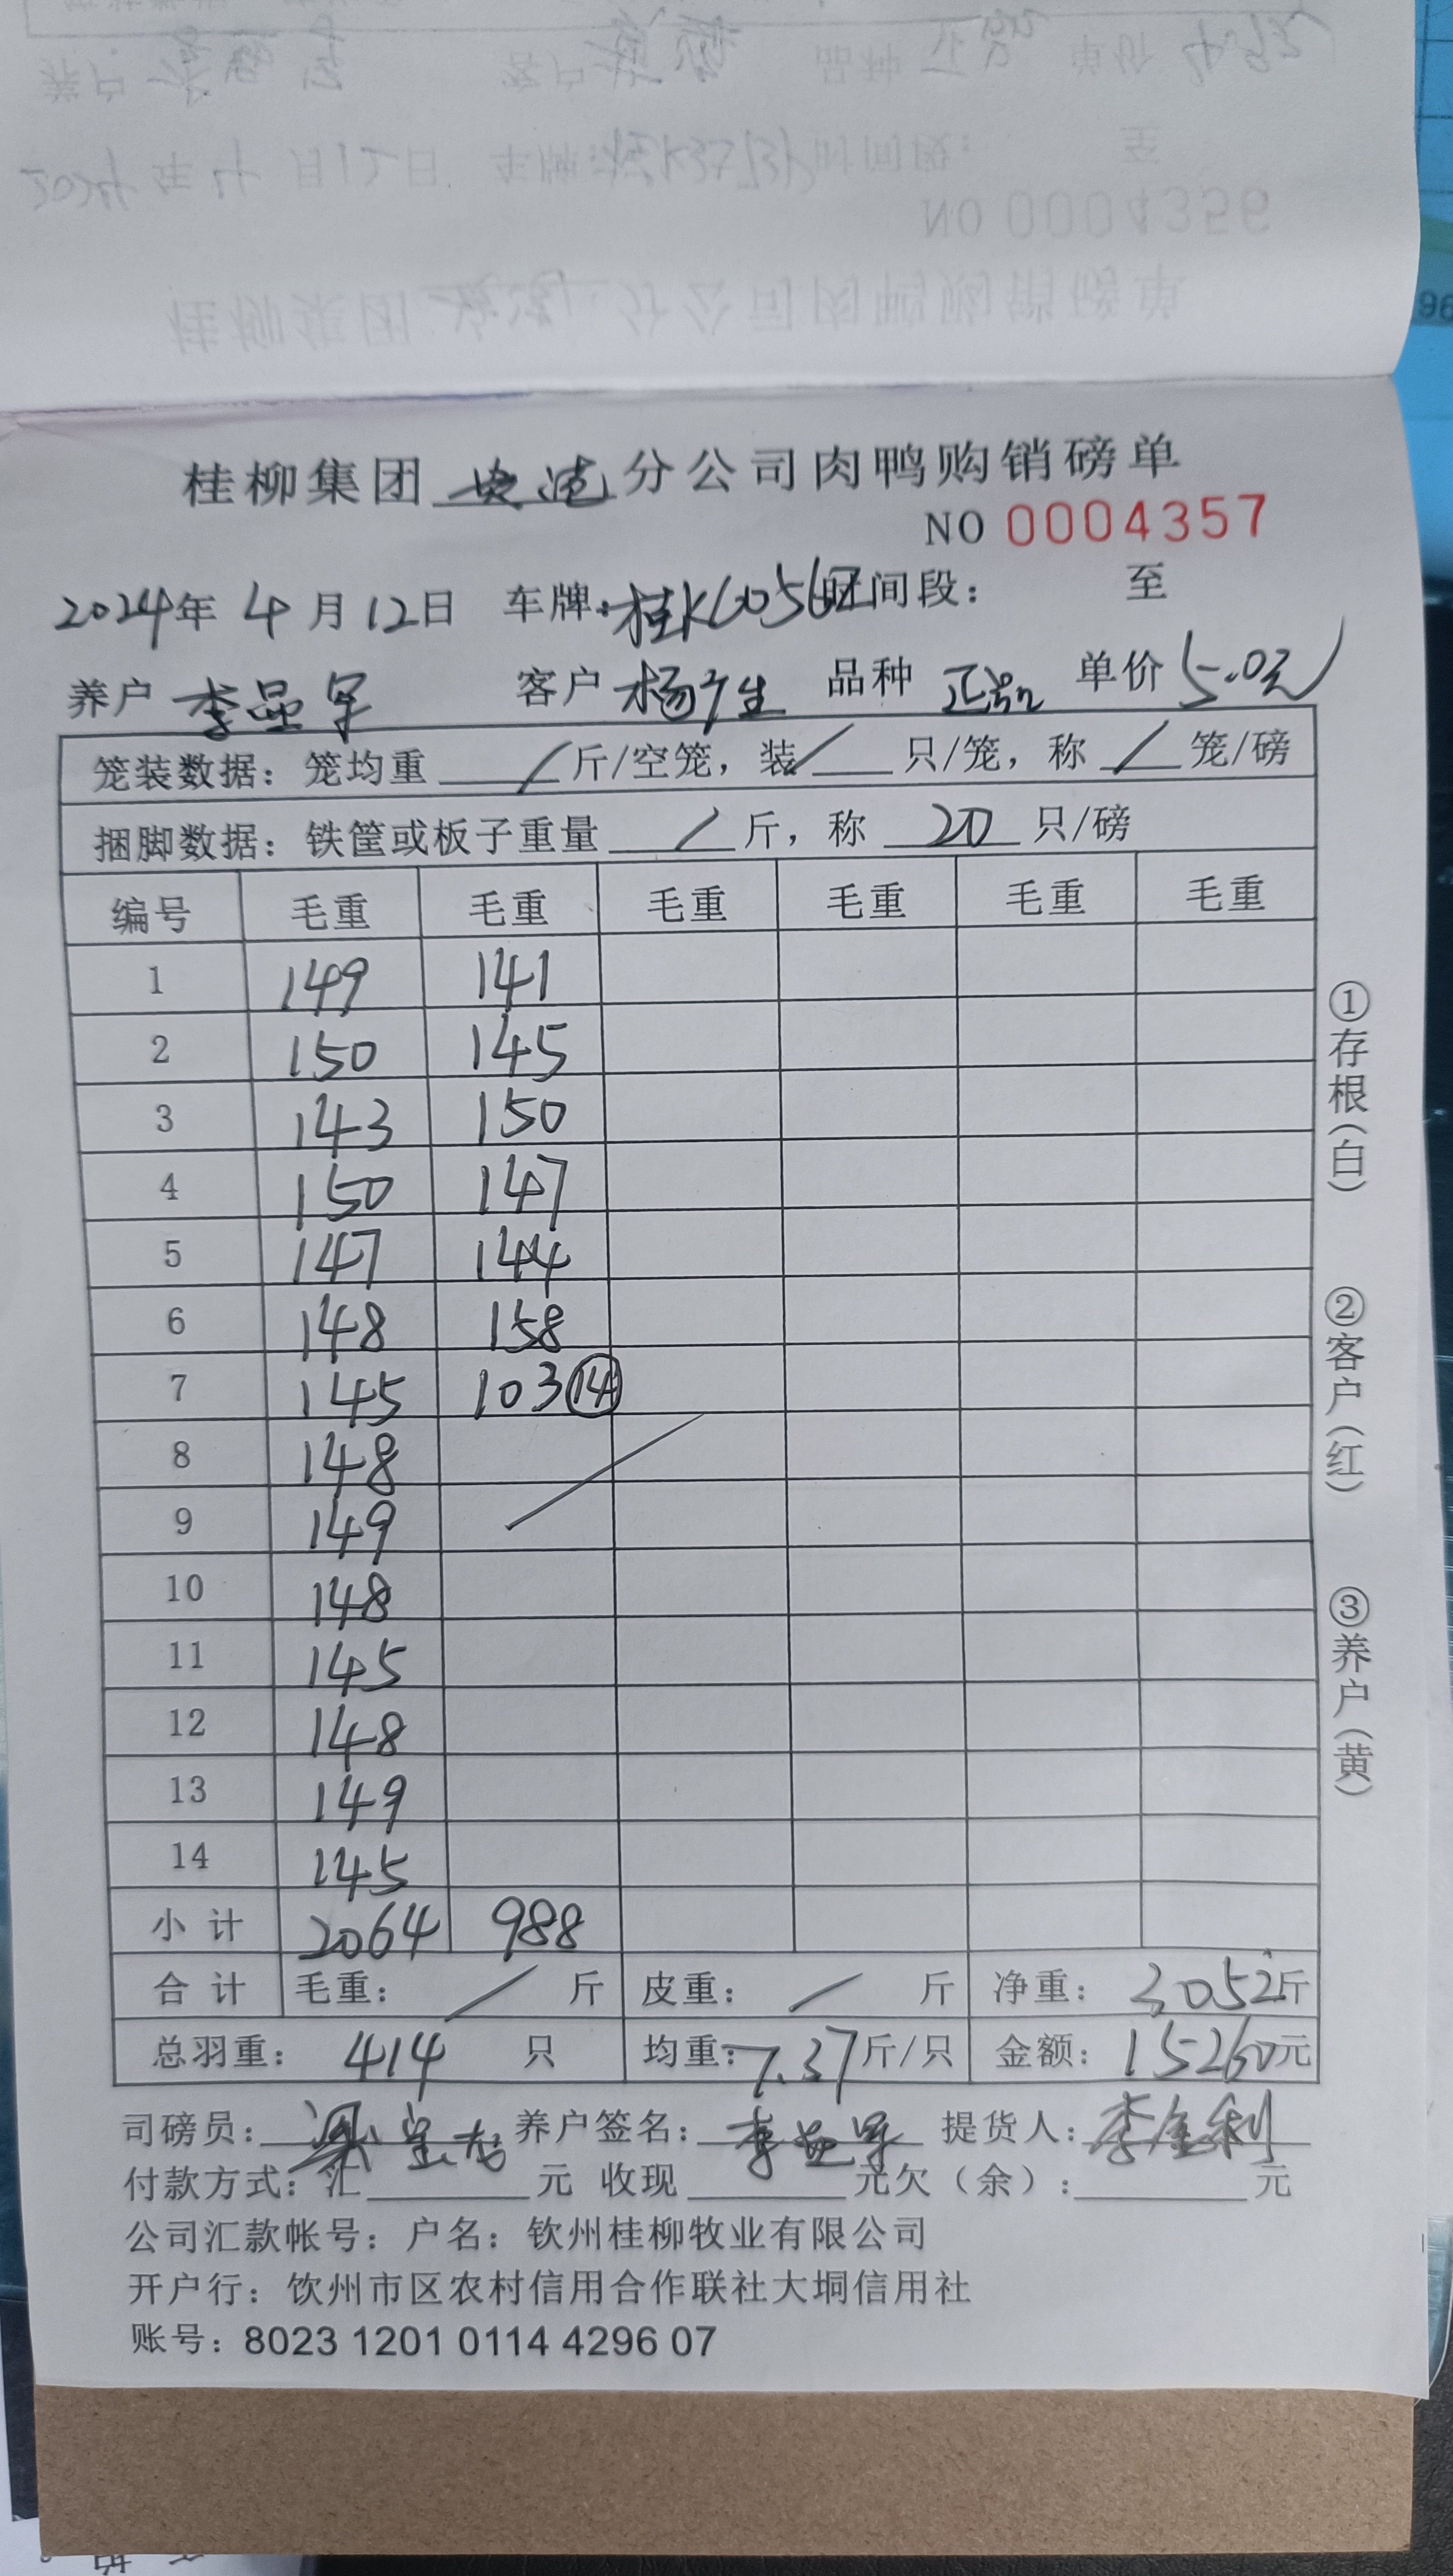 桂柳集团 分公司肉鸭购销磅单
NO 0004357
2024年 4月12日 车牌:桂K 时间段: 至
养户 李显军 客户 杨广生 品种 正品 单价 5.0元
笼装数据: 笼均重 / 斤/空笼, 装 / 只/笼, 称 / 笼/磅
捆脚数据: 铁筐或板子重量 / 斤, 称 20 只/磅
编号 毛重 毛重 毛重 毛重 毛重 毛重
1 149 141
2 150 145
3 143 150
4 150 147
5 147 144
6 148 158
7 145 103 ⑭
8 148
9 149
10 148
11 145
12 148
13 149
14 145
小计 2064 988
合计 毛重: / 斤 皮重: / 斤 净重: 3052斤
总羽重: 414 只 均重: 7.37斤/只 金额: 15260元
司磅员: 养户签名: 李显军 提货人: 李金利
付款方式: 汇 元 收现 元欠(余): 元
公司汇款帐号: 户名: 钦州桂柳牧业有限公司
开户行: 饮州市区农村信用合作联社大垌信用社
账号: 8023 1201 0114 4296 07
①存根(白)
②客户(红)
③养户(黄)